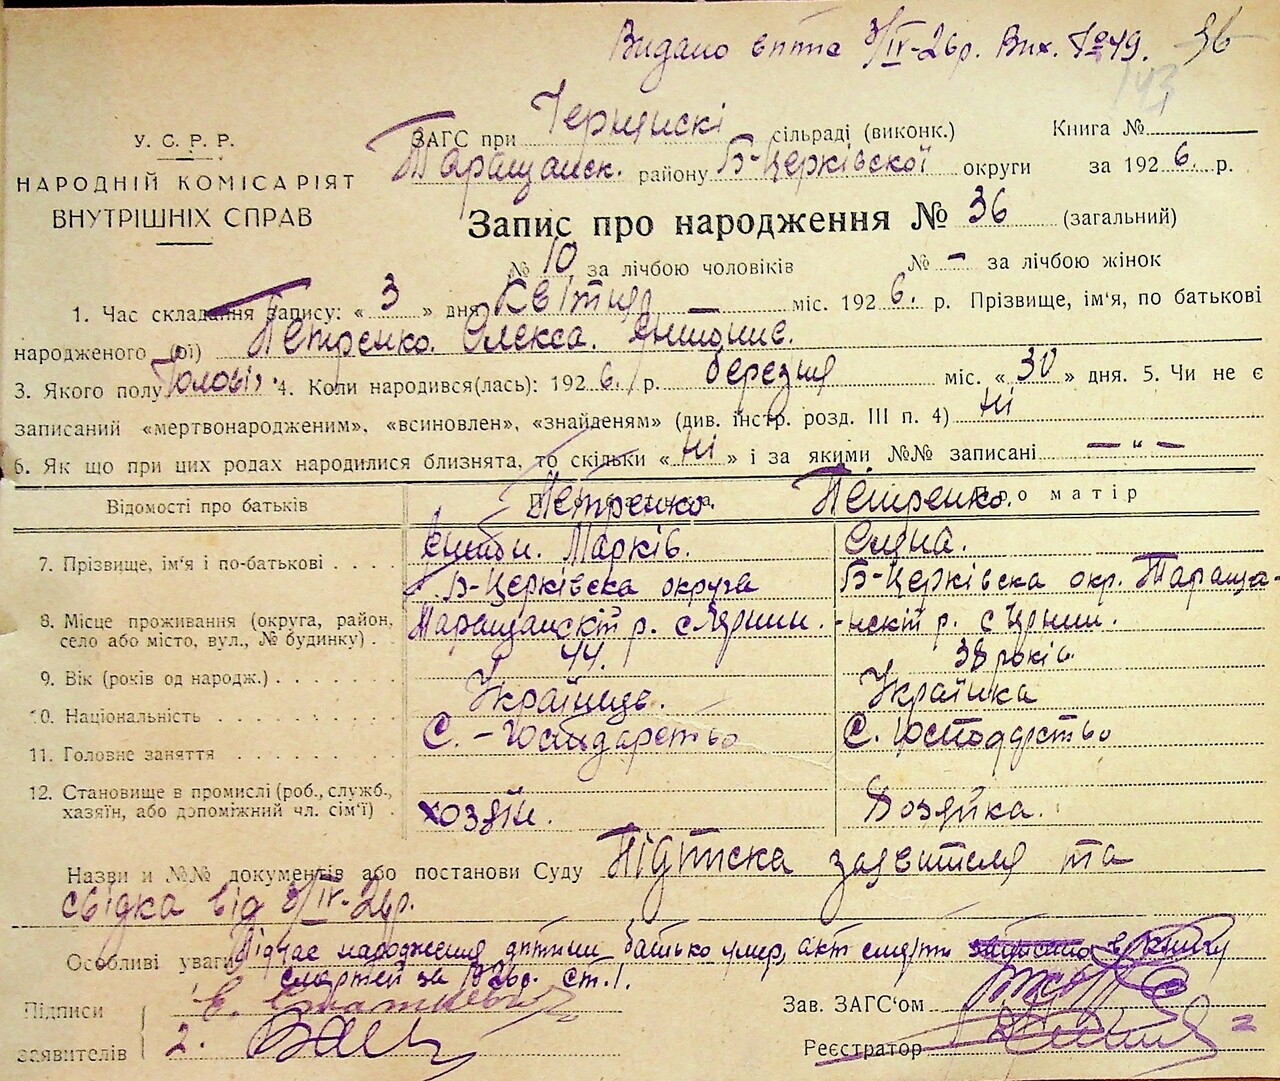 Видано 3/IV-26р. Вих. №49. 36
143
У. С. Р. Р.
НАРОДНІЙ КОМІСАРІЯТ
ВНУТРІШНІХ СПРАВ
ЗАГС при сільраді (виконк.) Книга №
Таращанск. району Б-Церківской округи за 1926. р.
Запис про народження № 36 (загальний)
№ 10 за лічбою чоловіків № – за лічбою жінок
1. Час складання запису: « 3 » дня Квітня – міс. 1926. р. Прізвище, ім'я, по батькові
народженого (ої) Петренко. Олекса.
3. Якого полу Чолові. 4. Коли народився(лась): 1926. р. березня міс. « 30 » дня. 5. Чи не є
записаний «мертвонародженим», «всиновлен», «знайденям» (див. інстр. розд. III п. 4) Ні
6. Як що при цих родах народилися близнята, то скільки « Ні » і за якими №№ записані — " —
Відомості про батьків Про батька Про матір
Петренко. Петренко.
7. Прізвище, ім'я і по-батькові Марків.
Б-Церківска округа Б-Церківска окр. Тараща-
8. Місце проживання (округа, район, село або місто, вул., № будинку) Таращанскт р. с -нскт р. с
9. Вік (років од народж.) 44. 38 років.
10. Національність Українець. Українка
11. Головне заняття С.-Господарство С. Господарство
12. Становище в промислі (роб., служб., хазяїн, або допоміжний чл. сім'ї) хозяїн. Хозяйка.
Назви и №№ документів або постанови Суду Підписка заявителя та
свідка від 3/IV-26р.
Особливі уваги Підчас народження дитини батько умер, акт смерти записано в книгу
смертей за 1926р. ст. 1.
Підписи Зав. ЗАГС'ом
заявителів 2. Реєстратор